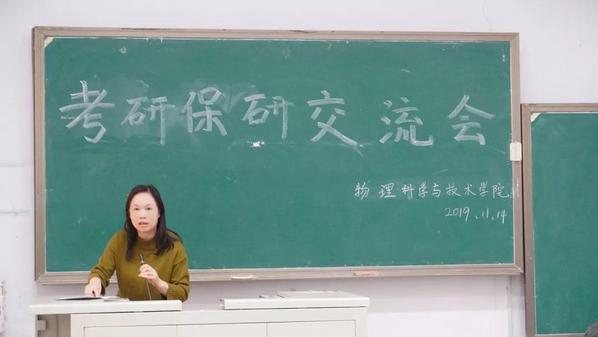 考研保研交流会
物理科学与技术学院
2019.11.14